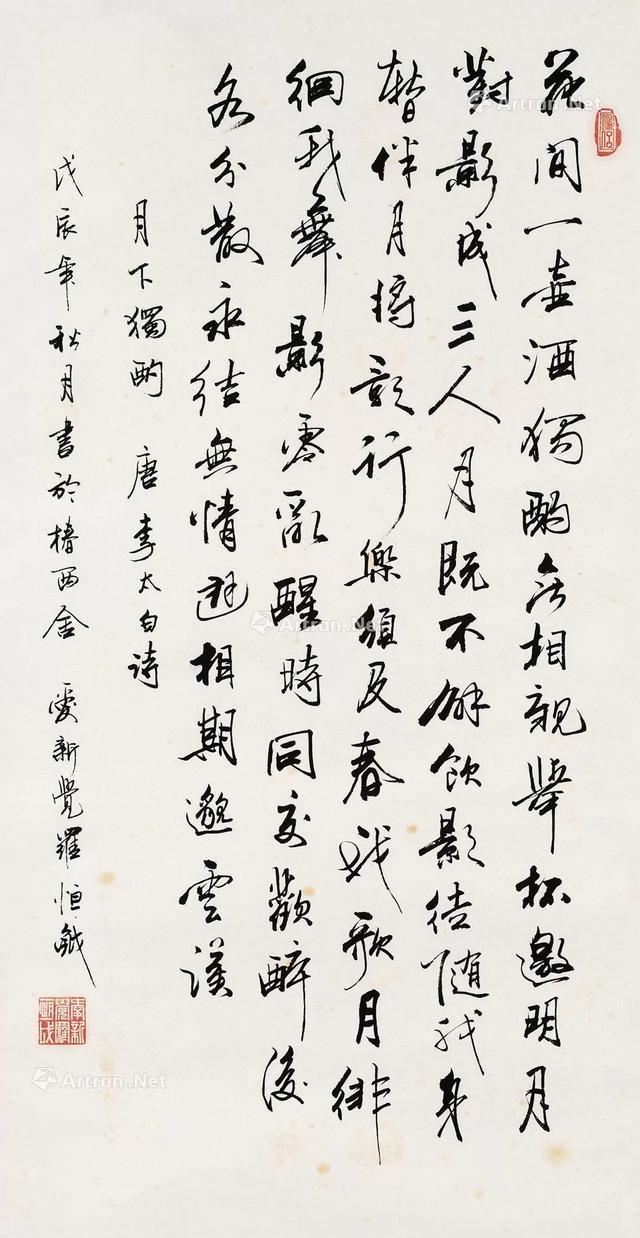 花間一壺酒獨酌无相親舉杯邀明月
對影成三人月既不解飲影徒随我身
暫伴月將影行樂須及春我歌月徘
徊我舞影零亂醒時同交歡醉後
各分散永結無情遊相期邈雲漢
月下獨酌 唐李太白詩
戊辰年秋月書於椿西舍 愛新覺羅恒鉞
Artron.Net